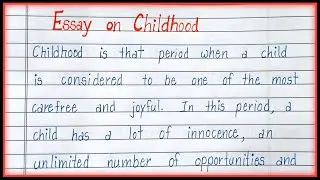 Essay on Childhood
Childhood is that period when a child
is considered to be one of the most
carefree and joyful. In this period, a
child has a lot of innocence, an
unlimited number of opportunities and